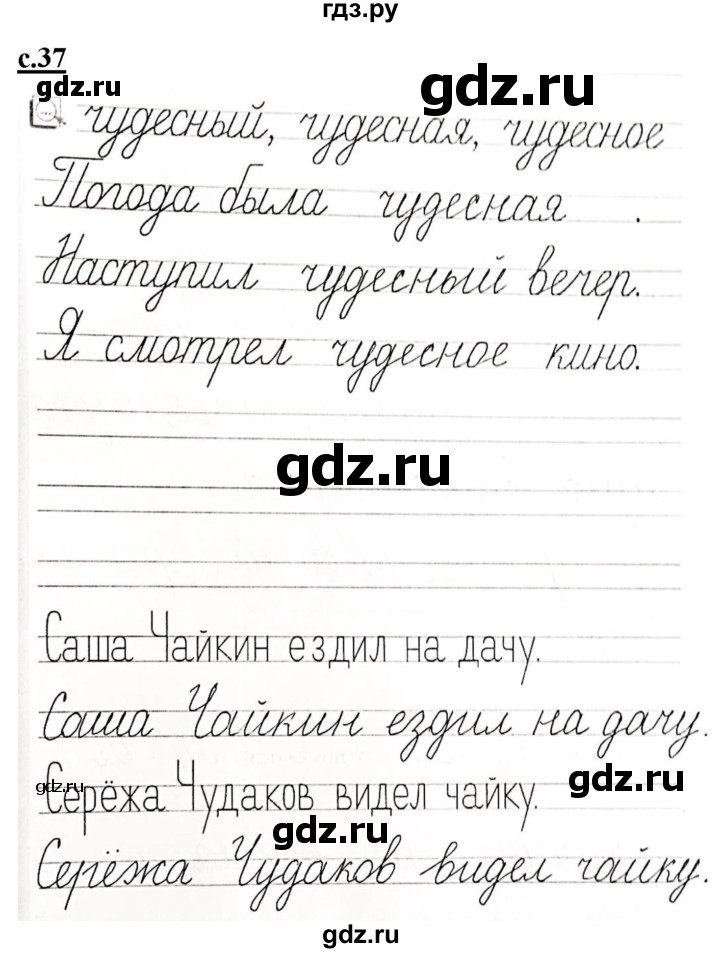 гдз.ру
с.37
gdz.ru
gdz.ru
чудесный, чудесная, чудесное
Погода была чудесная .
gdz.ru
Наступил чудесный вечер.
Я смотрел чудесное кино.
gdz.ru
Саша Чайкин ездил на дачу.
Саша Чайкин ездил на дачу.
gdz.ru
gdz.ru
Серёжа Чудаков видел чайку.
gdz.ru
Серёжа Чудаков видел чайку.
gdz.ru